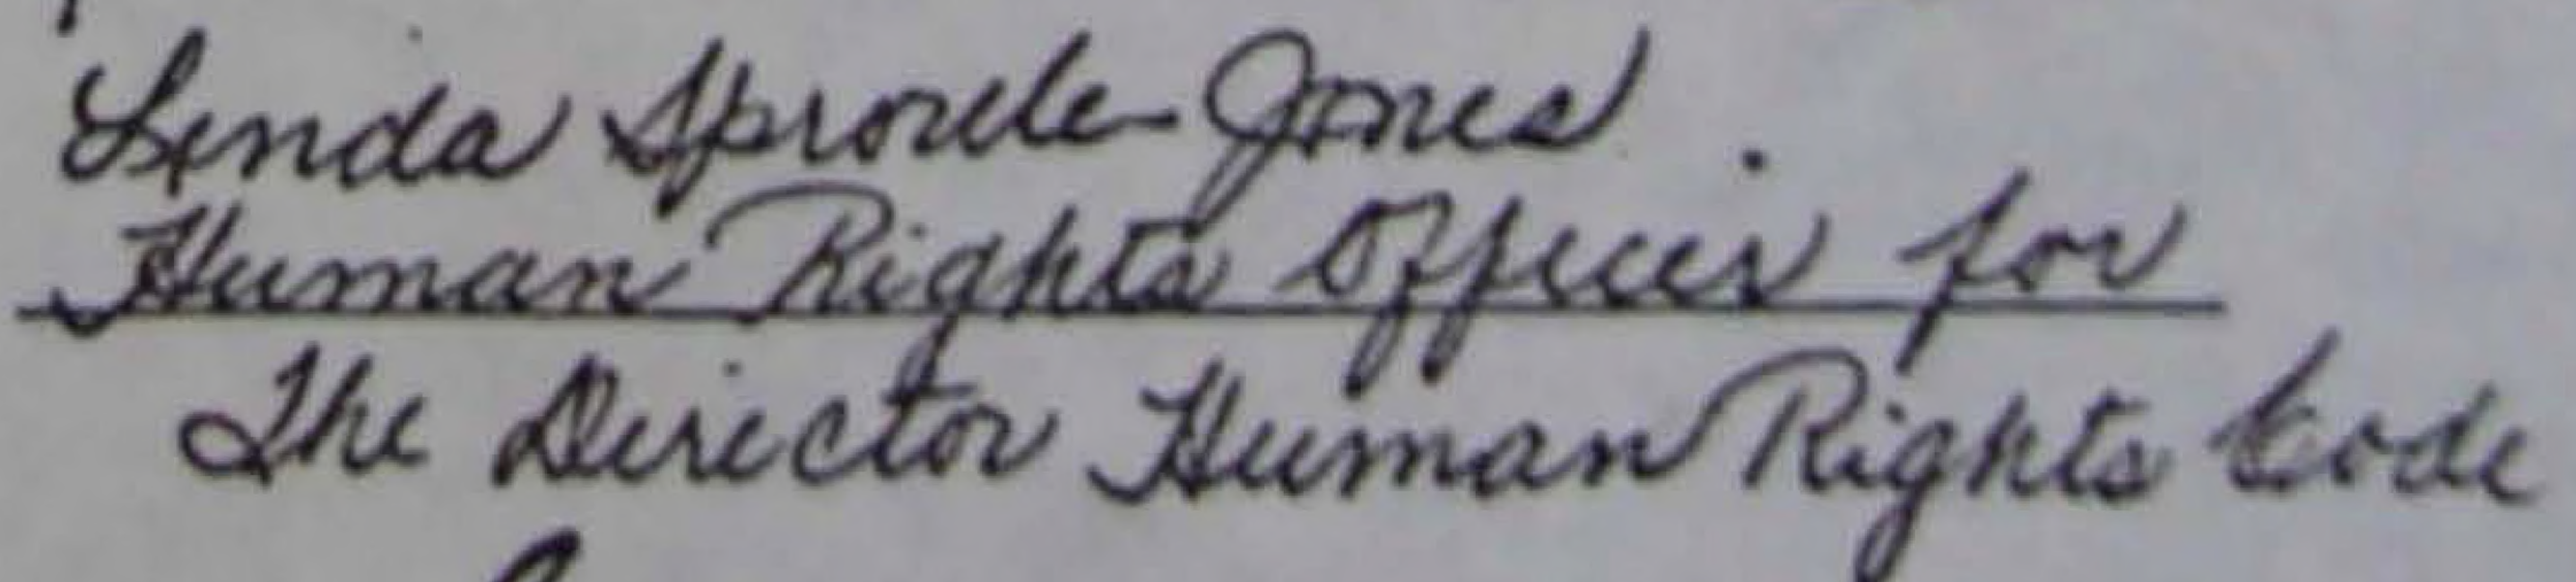 Linda Sproule-Jones
Human Rights Officer for
The Director Human Rights Code